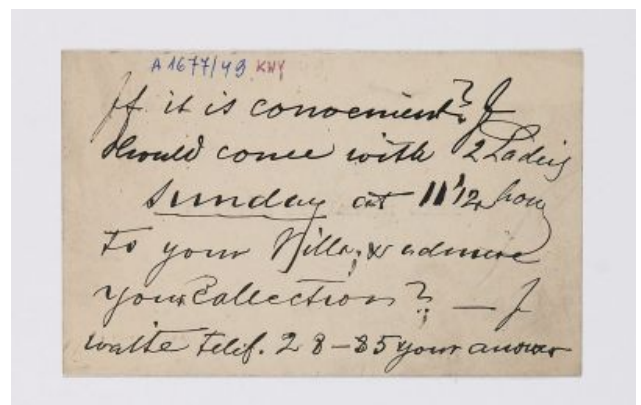 A 1677/49 KHY
If it is convenient? I
should come with 2 Ladies
Sunday at 11 1/2 hour
to your Villa, & admire
your Collections? — I
waite telef. 28-85 your answer